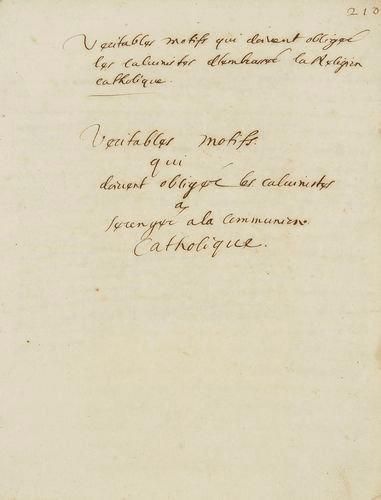 210
Veritables motifs qui doivent obliger
les calvinistes d'embrasser la Religion
catholique.
Veritables motifs.
qui
doivent obliger les calvinistes
a
se renger a la Communion
Catholique.